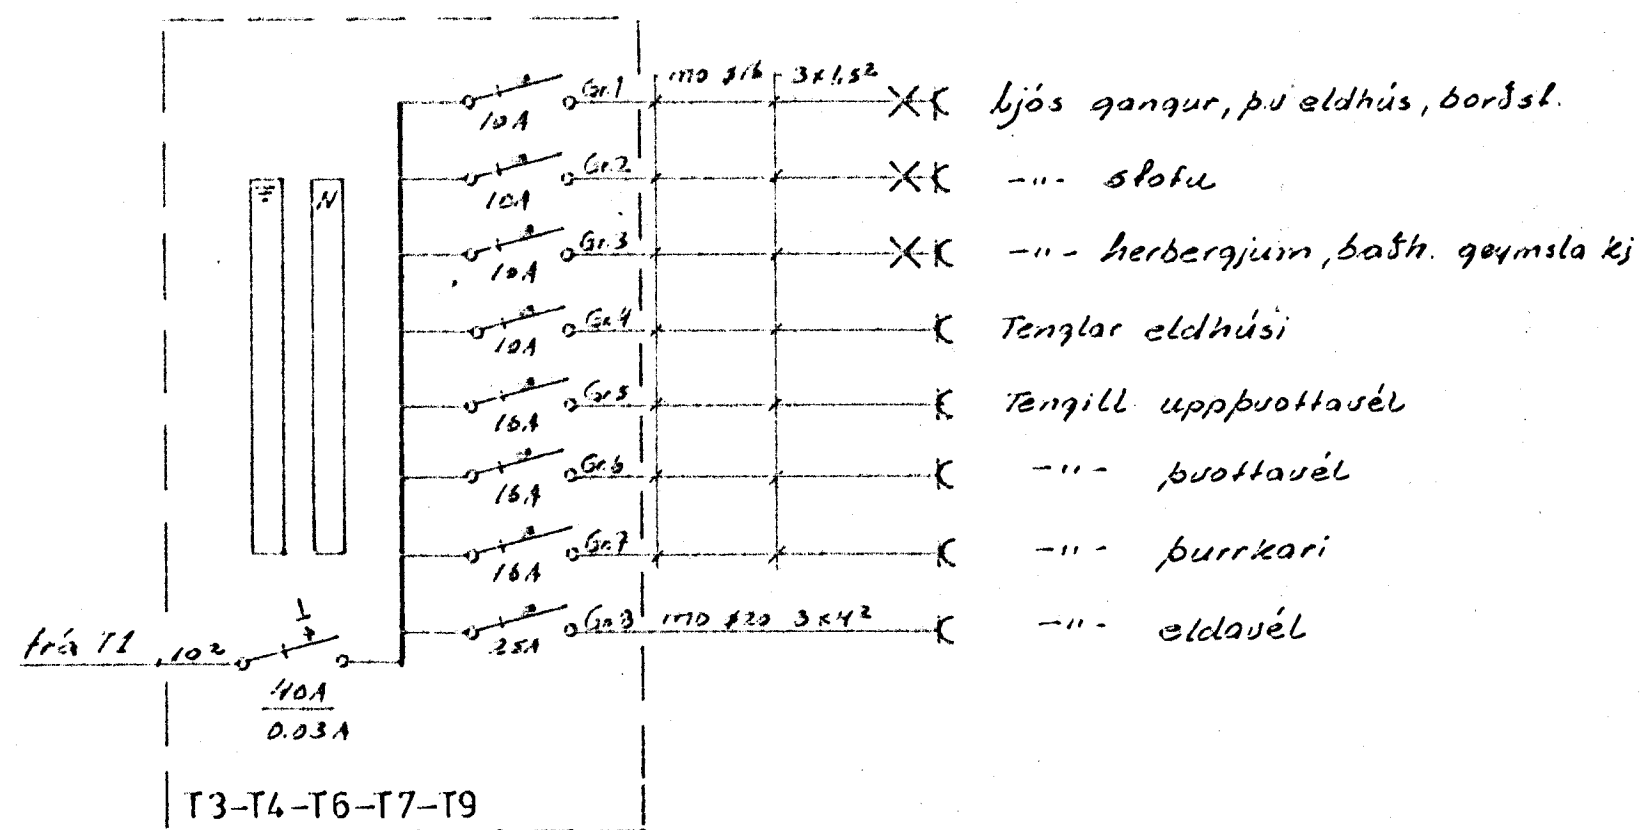 Gr.1 m0 ø16 3x1,5² Ljós gangur, þv eldhús, borðst.
10A
Gr.2 -"- stofu
10A
N
Gr.3 -"- herbergjum, baðh. geymsla kj
10A
Gr.4 Tenglar eldhúsi
10A
Gr.5 Tengill uppþvottavél
16A
Gr.6 -"- þvottavél
16A
Gr.7 -"- þurrkari
16A
Gr.8 m0 ø20 3x4² -"- eldavél
25A
frá T1 10²
40A
0.03A
T3-T4-T6-T7-T9